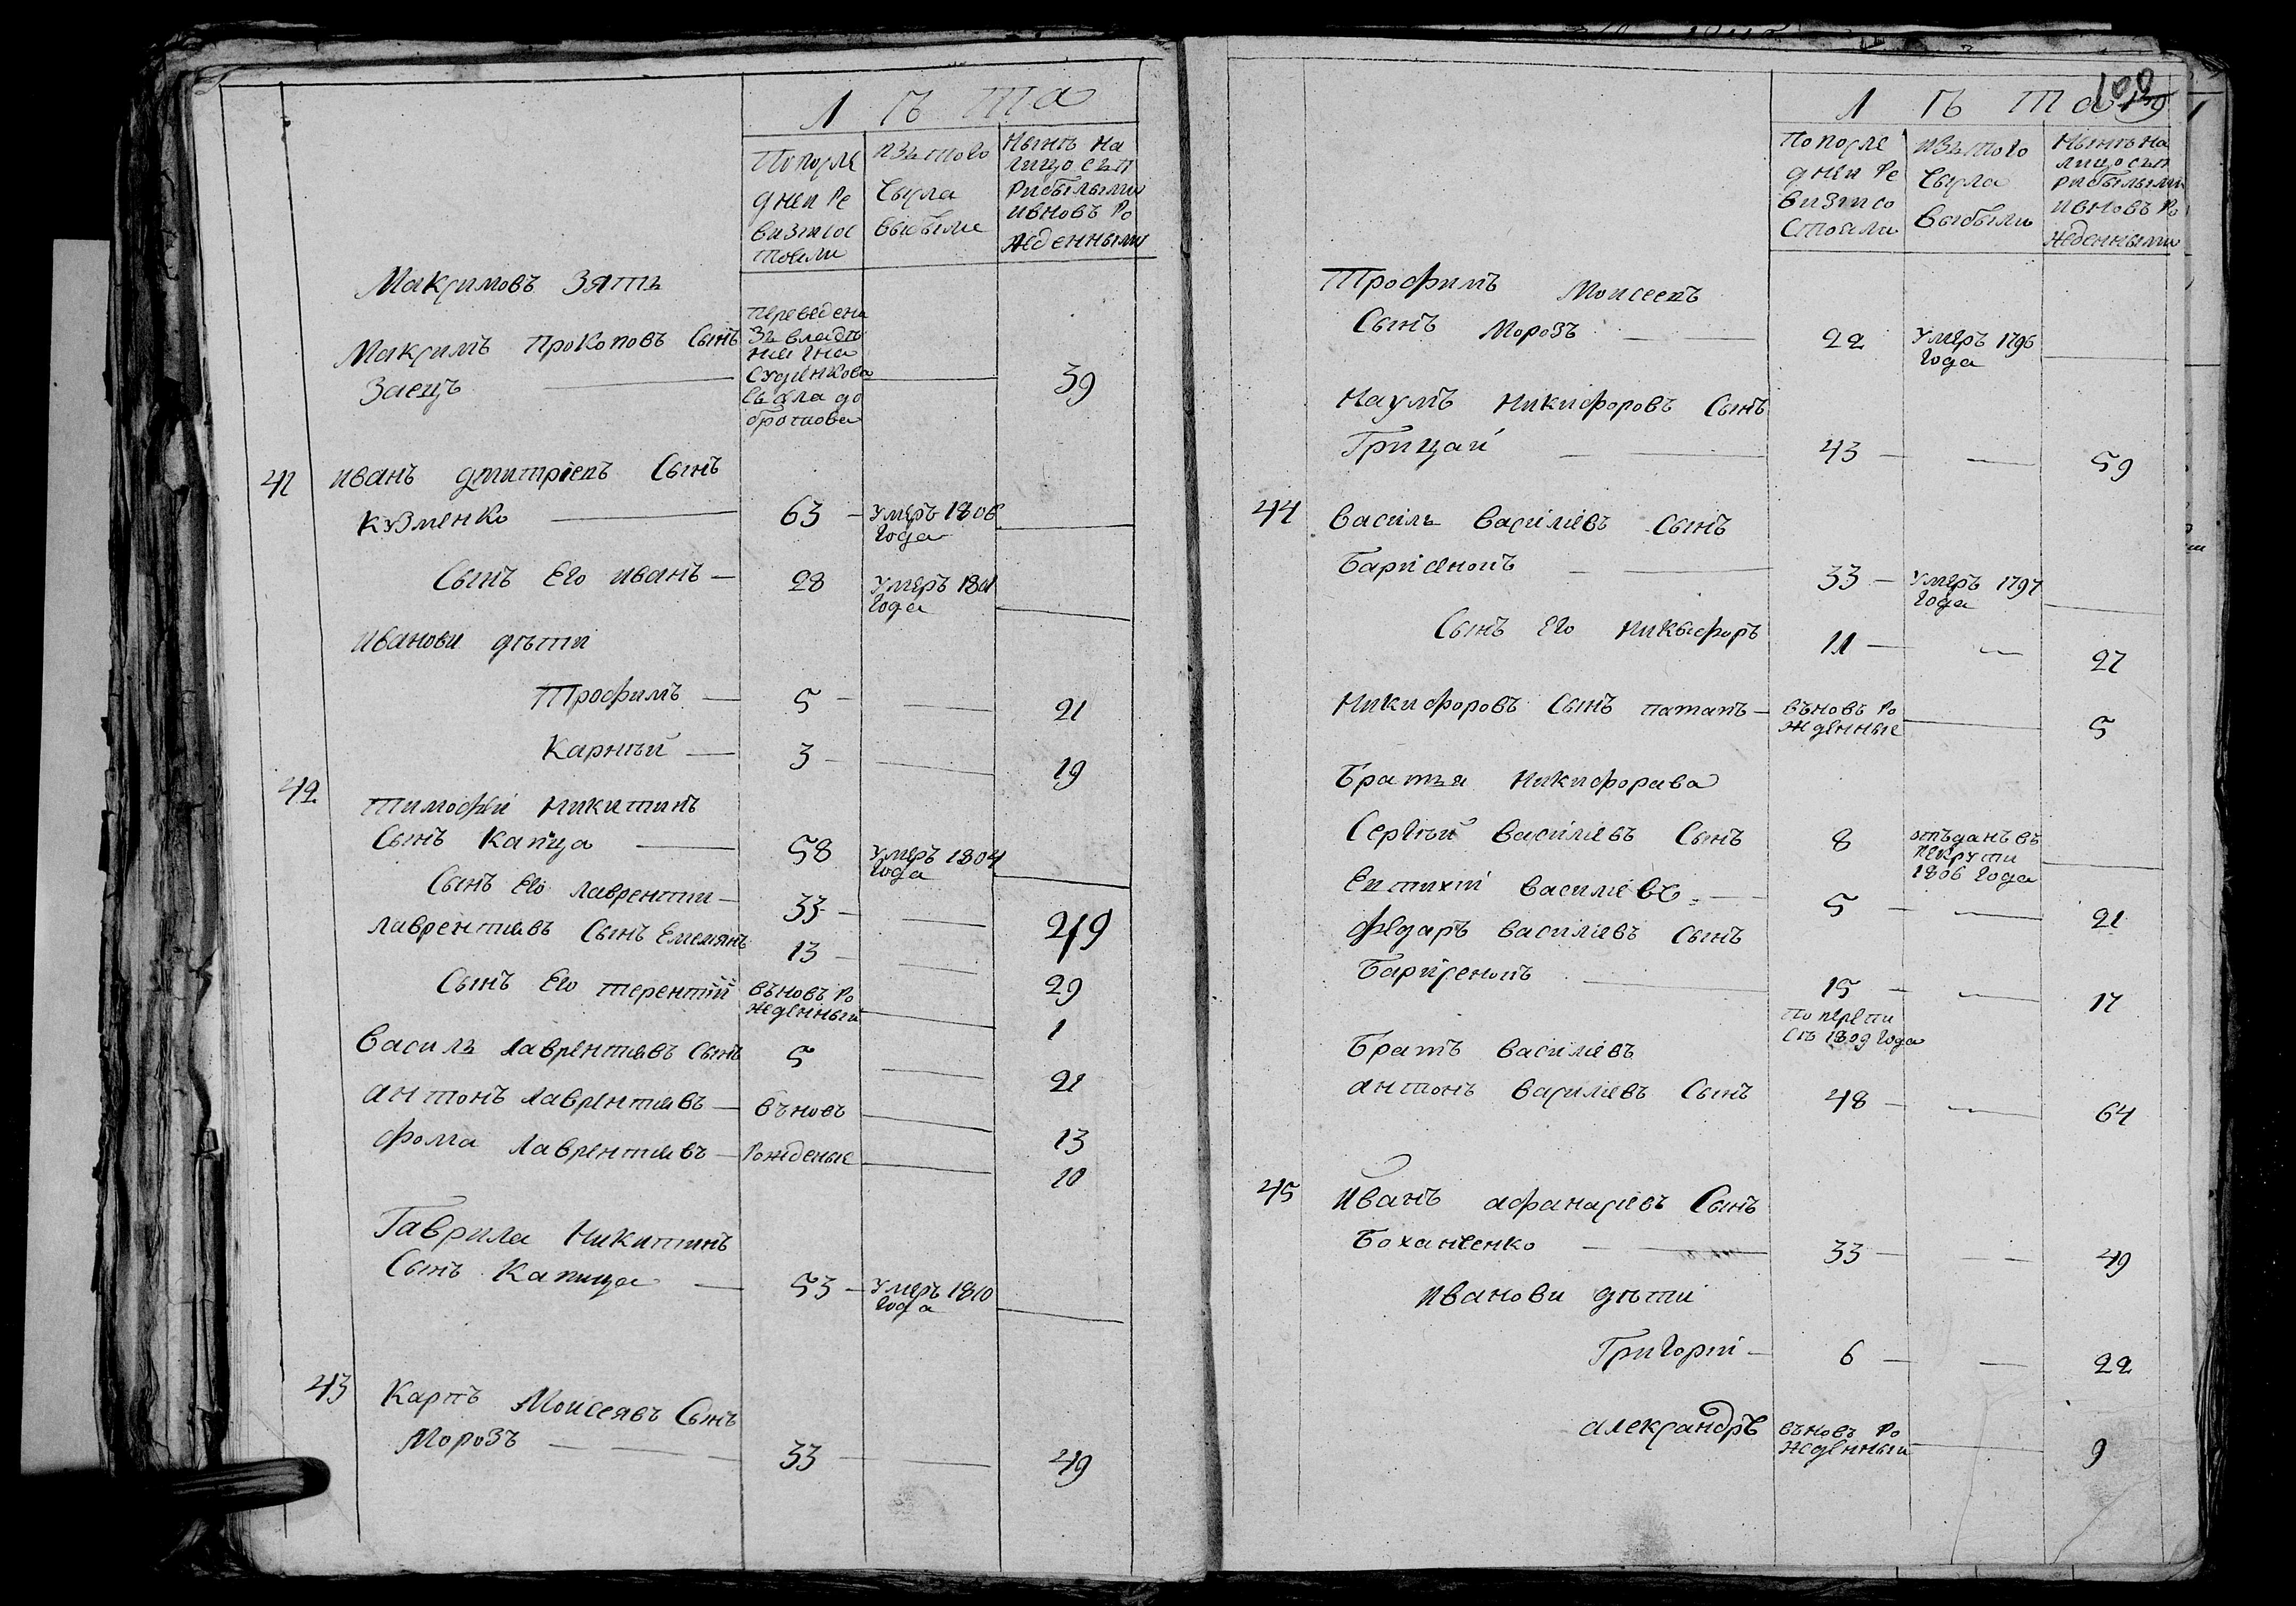 Лѣта
Попосле
дней ре
визiисос
тояли
изътого
Числа
выбыли
Нынѣ на
лицо съп
рибылыми
ивновь ро
жденными
Максимовъ Зять
Максимъ Прокоповъ Сынъ
Заецъ
переведенъ
39
41
иванъ дмитріевъ Сынъ
кузменко
63
умеръ 1808
года
Сынъ Его иванъ
28
умеръ 1801
года
ивановы дѣти
Трофимъ 5 21
Карнѣй 3 19
42
тимофѣй Никитинъ
Сынъ Капица
58
умеръ 1804
года
Сынъ Его лаврентий 33 49
лаврентиевъ Сынъ Емелянъ 13 29
Сынъ Его терентий
вѣновь ро
жденный
1
Василь лаврентиевъ Сынъ 5 21
антонъ лаврентиевъ вѣновь 13
фома лаврентиевъ рожденые 10
Гаврила Никитинъ
Сынъ Капица
53
умеръ 1810
года
43
Карпъ Моисеявъ Сынъ
Морозъ 33 49
109
Лѣта
Попосле
дней ре
визiисо
стояли
изътого
Числа
выбыли
Нынѣ на
лицо съп
рибылыми
ивновь ро
жденными
Трофимъ Моисеевъ
Сынъ Морозъ
22
умеръ 1796
года
Наумъ Никифоровъ Сынъ
Грицай 43 59
44
василь василиевъ сынъ
33
умеръ 1797
года
Сынъ Его Никыфоръ 11 27
Никифоровъ Сынъ патапъ
вѣновь ро
жденные
5
Братья Никифорава
Сергѣй василиевъ Сынъ
8
отъданъ въ
рекруты
1806 года
Евтихiй василиевъ 5 21
Федаръ василиевъ сынъ
15 17
по перепи
си 1809 года
Братъ василиевъ
антонъ василиевъ Сынъ 48 64
45
Иванъ афанасiевъ Сынъ
Боханченко 33 49
Ивановы дѣти
Григорiй 6 22
александръ
вѣновь ро
жденный
9